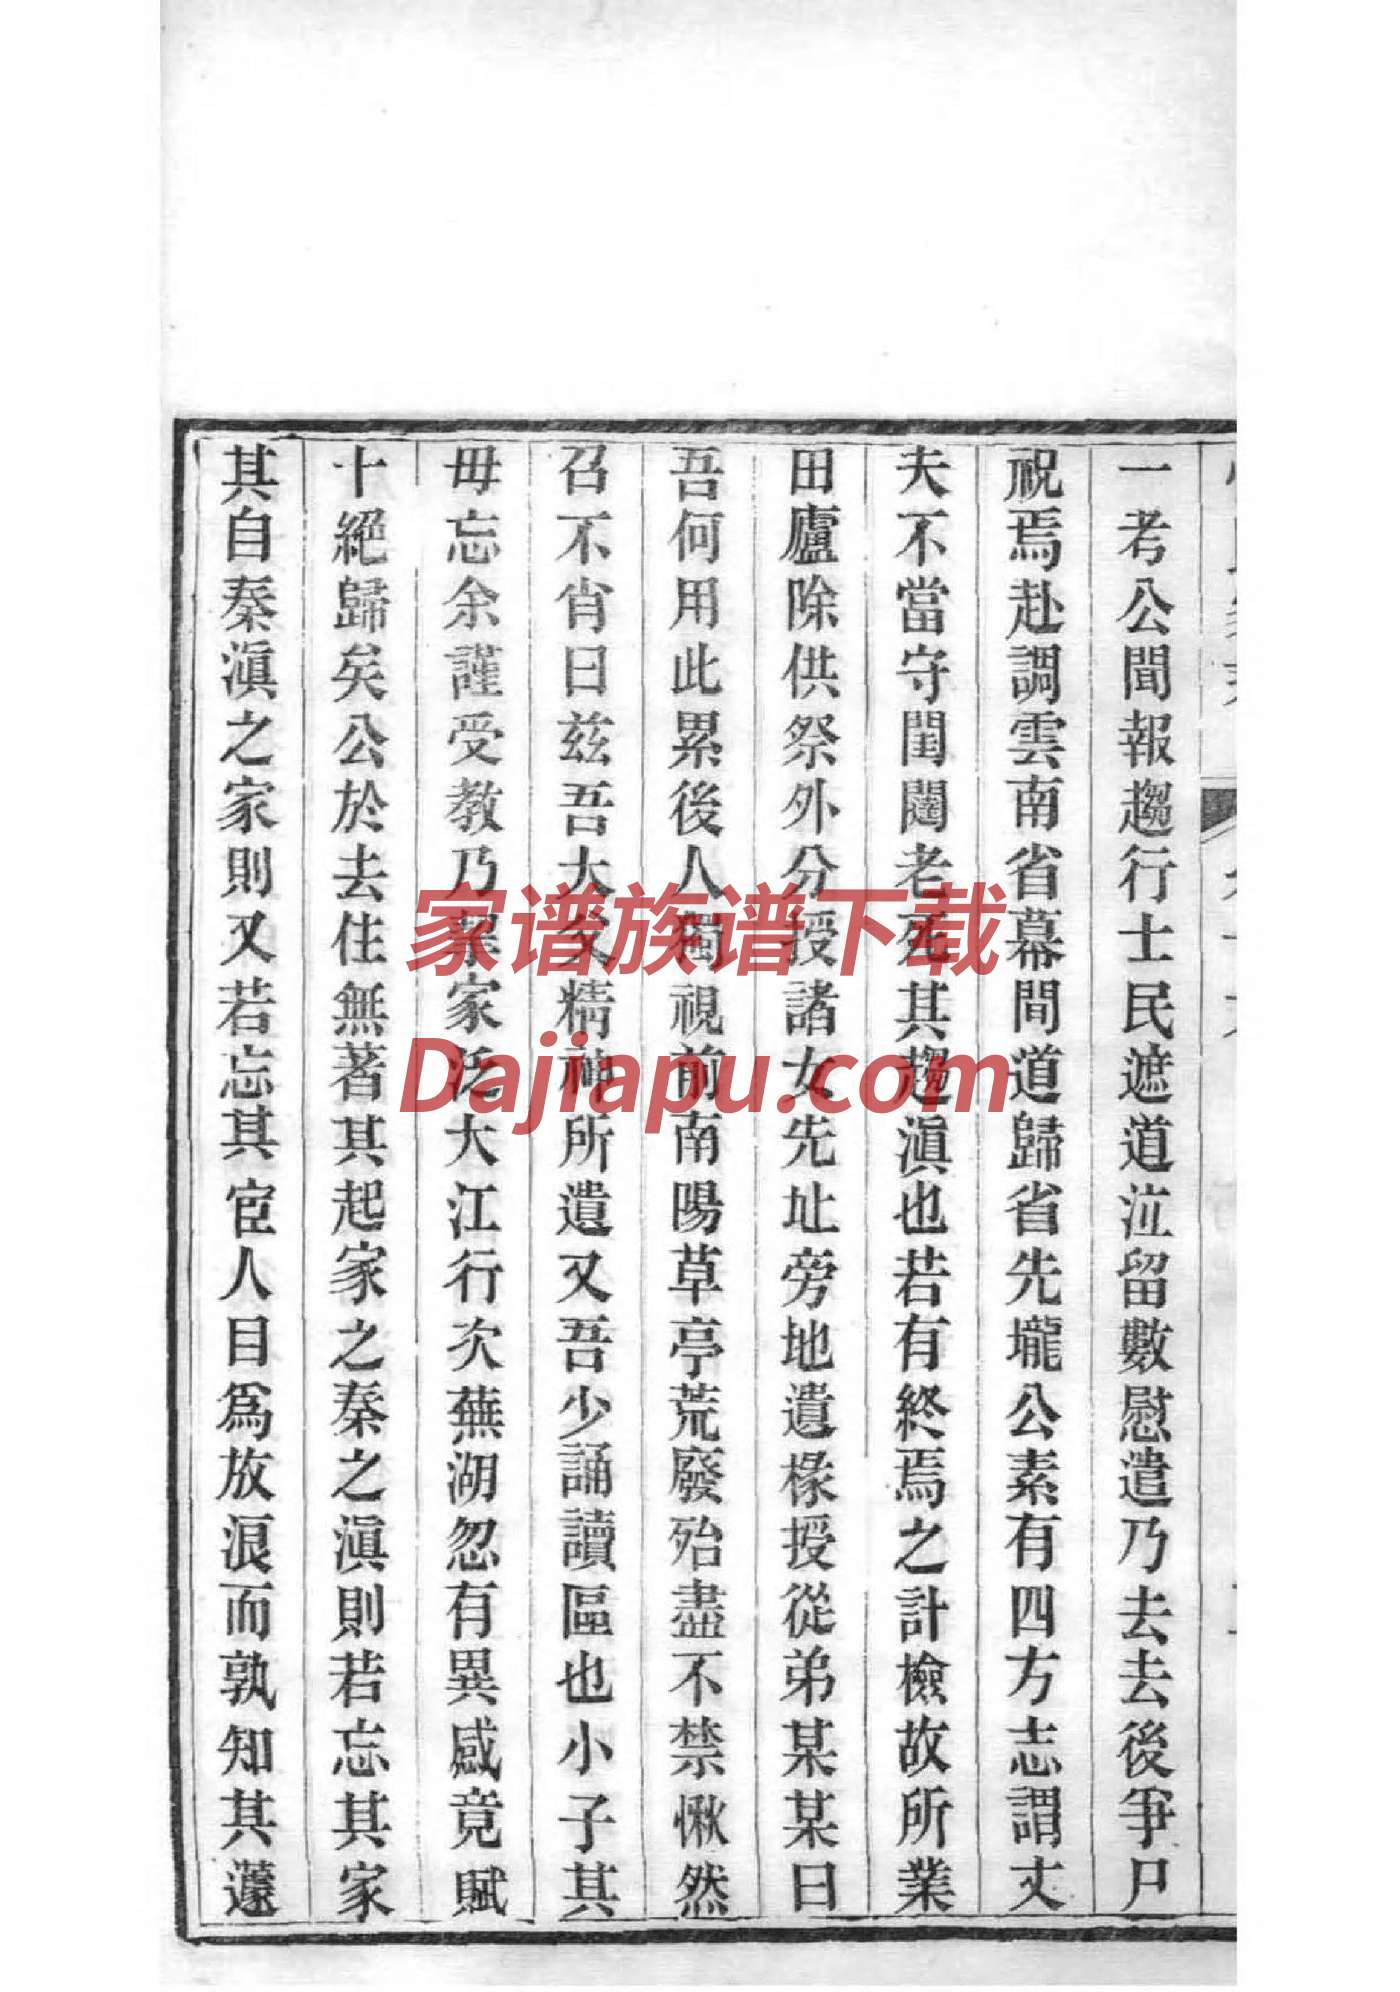 一考公聞報趨行士民遮道泣留數慰遣乃去去後爭尸
祝焉赴調雲南省幕間道歸省先壠公素有四方志謂丈
夫不當守閨闥老死其趨滇也若有終焉之計檢故所業
田廬除供祭外分授諸女先址旁地遺椽授從弟某某曰
吾何用此累後人獨視前南陽草亭荒廢殆盡不禁愀然
召不肖曰兹吾大父精神所遺又吾少誦讀區也小子其
毋忘余謹受教乃挈家泛大江行次蕪湖忽有異感竟賦
十絕歸矣公於去住無著其起家之秦之滇則若忘其家
其自秦滇之家則又若忘其宦人目爲放浪而孰知其蘧
家谱族谱下载
Dajiapu.com